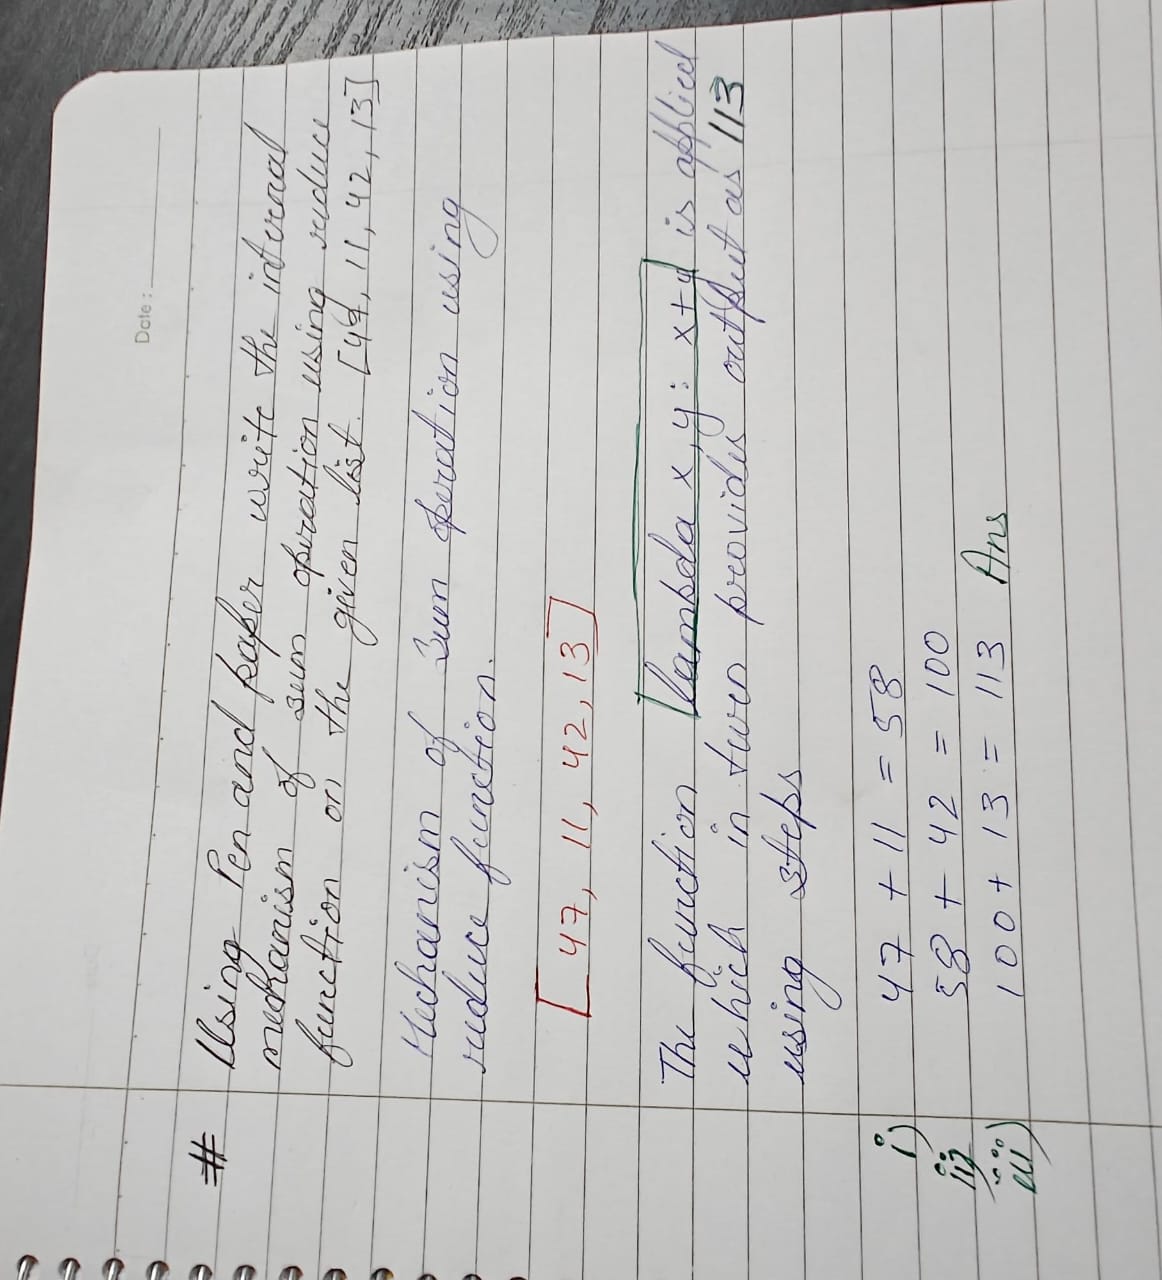 Date :
# Using Pen and paper write the internal
mechanism of sum operation using reduce
function on the given list. [47, 11, 42, 13]
Mechanism of Sum operation using
reduce function.
[47, 11, 42, 13]
The function lambda x, y: x+y is applied
which in turn provides output as 113
using steps
i) 47 + 11 = 58
ii) 58 + 42 = 100
iii) 100 + 13 = 113 Ans